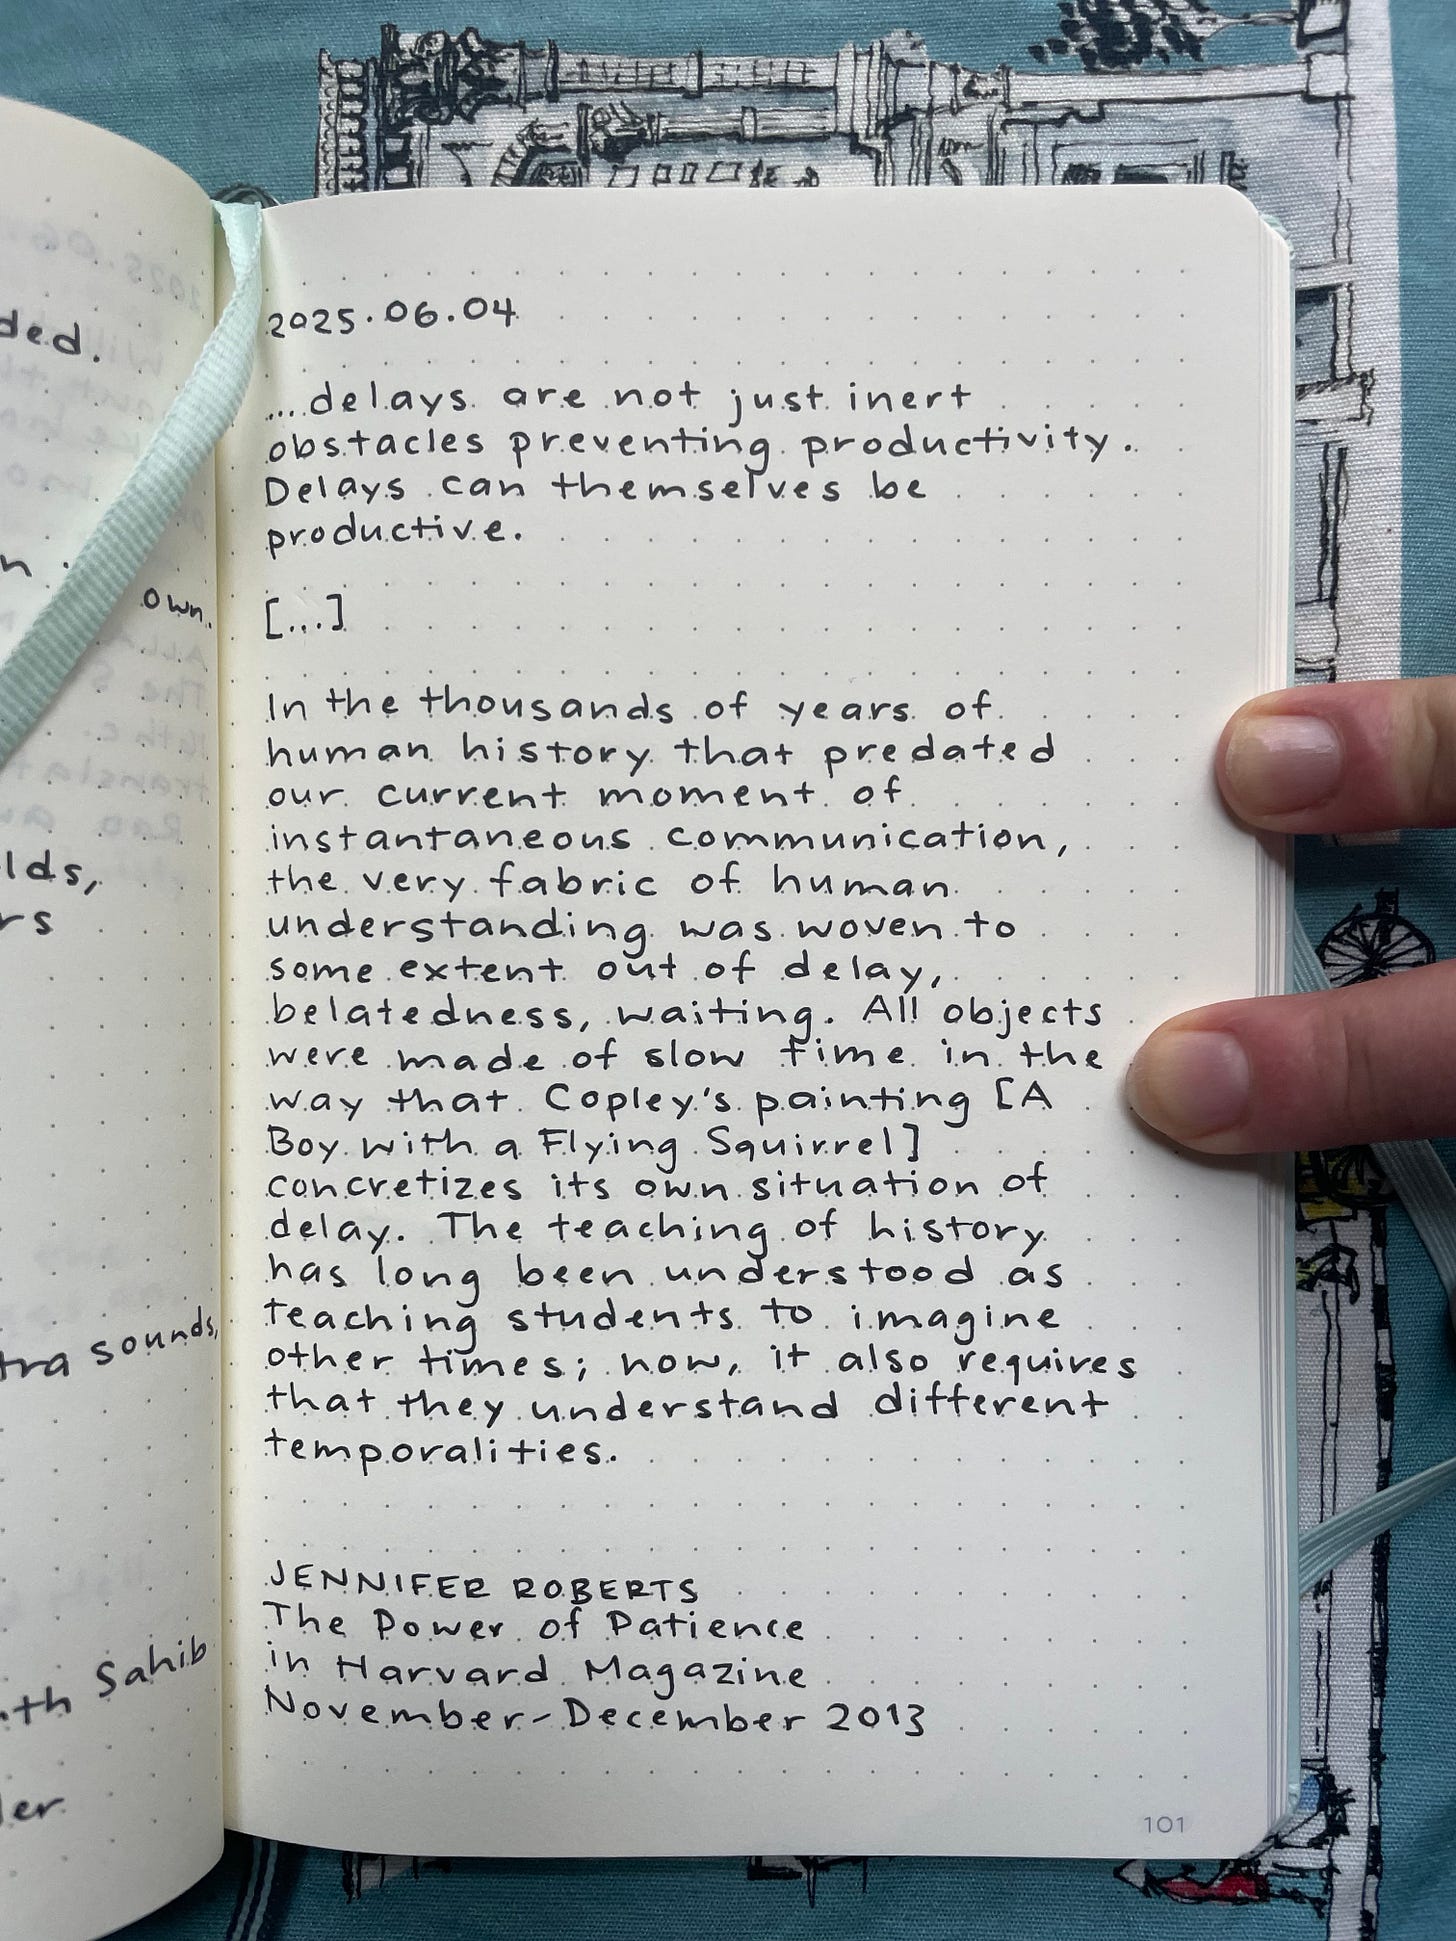 ded.
n
own.
lds,
rs
tra sounds,
th Sahib
ler
2025.06.04
...delays are not just inert
obstacles preventing productivity.
Delays can themselves be
productive.
[...]
In the thousands of years of
human history that predated
our current moment of
instantaneous communication,
the very fabric of human
understanding was woven to
some extent out of delay,
belatedness, waiting. All objects
were made of slow time in the
way that Copley's painting [A
Boy with a Flying Squirrel]
concretizes its own situation of
delay. The teaching of history
has long been understood as
teaching students to imagine
other times; now, it also requires
that they understand different
temporalities.
JENNIFER ROBERTS
The Power of Patience
in Harvard Magazine
November-December 2013
101